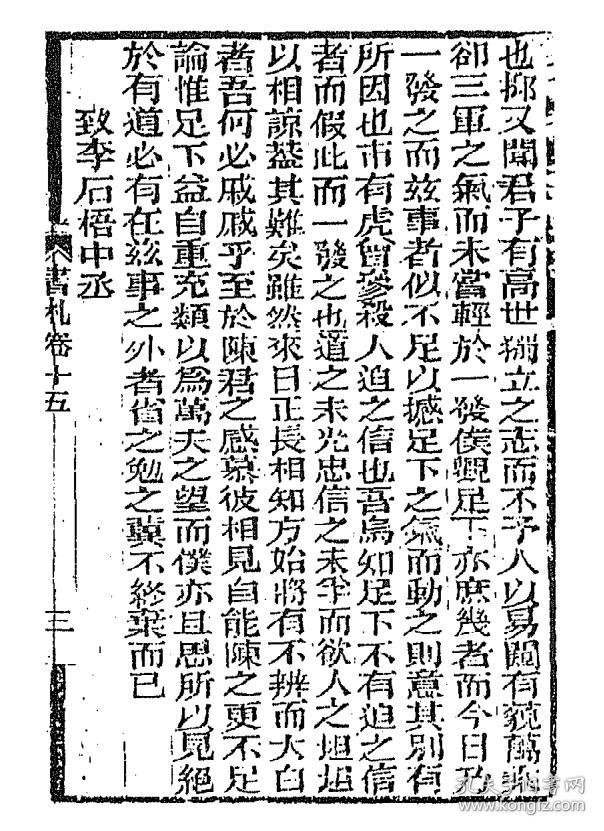 也抑又聞君子有高世獨立之志而不予人以易闚有藐萬乘
卻三軍之氣而未嘗輕於一發僕覸足下亦庶幾者而今日
一發之而茲事者似不足以撼足下之氣而動之則意其別有
所因也市有虎曾參殺人迫之信也吾烏知足下不有迫之信
者而假此而一發之也道之未光忠信之未孚而欲人之坦坦
以相諒葢其難矣雖然來日正長相知方始將有不辨而大白
者吾何必戚戚乎至於陳君之感慕彼相見自能陳之更不足
論惟足下益自重充類以為萬夫之望而僕亦且思所以見絕
於有道必有在茲事之外者省之勉之冀不終棄而已
致李石梧中丞
書札卷十五
三
孔夫子旧书网